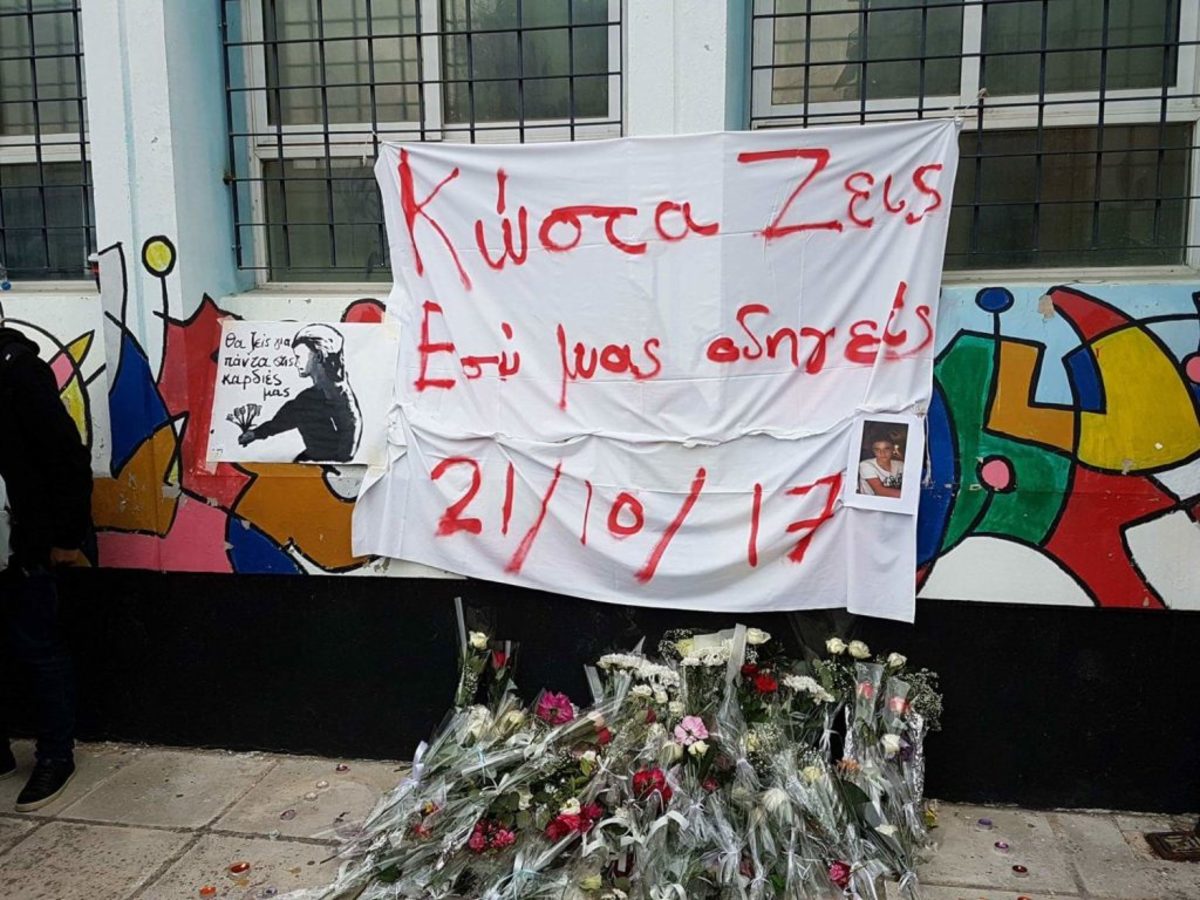 Κώστα Ζεις
Εσύ μας οδηγείς
21/10/17
Θα ζεις για
πάντα στις
καρδιές
μας